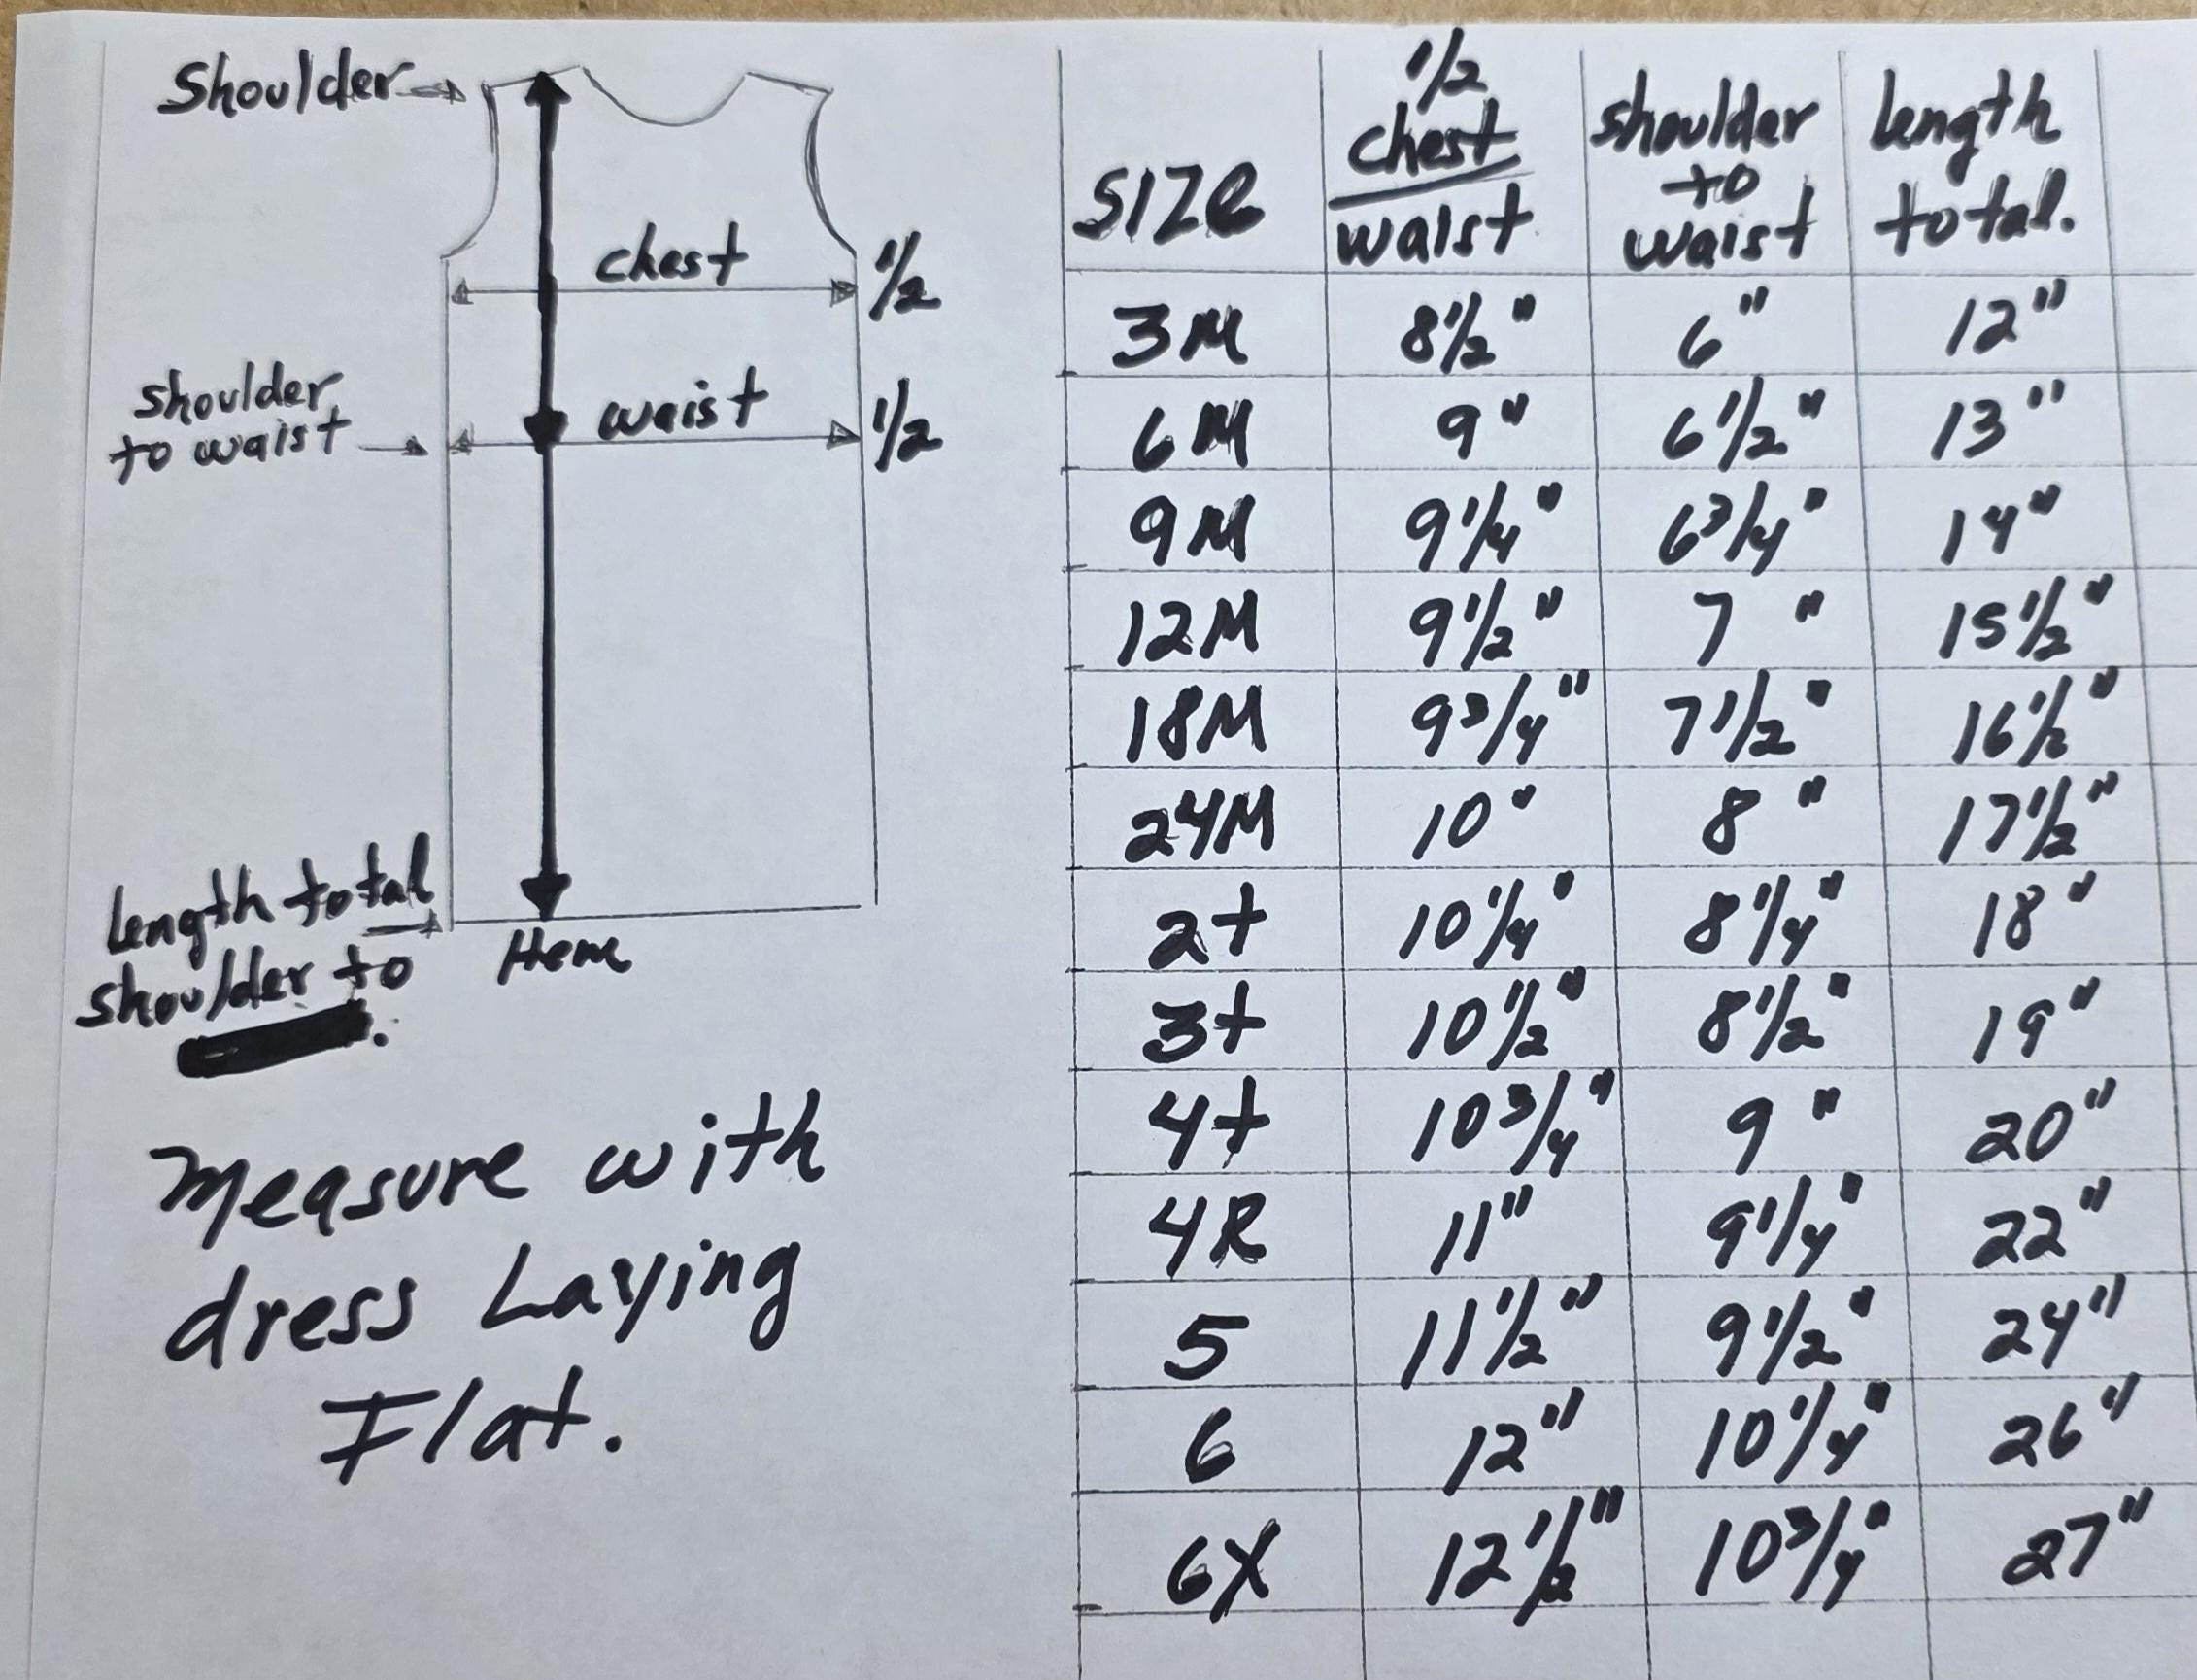 Shoulder
chest 1/2
shoulder
to waist
waist 1/2
Length total
shoulder to
Hem
Measure with
dress Laying
Flat.
SIZe 1/2 chest/waist shoulder to waist length total.
3M 8 1/2" 6" 12"
6M 9" 6 1/2" 13"
9M 9 1/4" 6 3/4" 14"
12M 9 1/2" 7" 15 1/2"
18M 9 3/4" 7 1/2" 16 1/2"
24M 10" 8" 17 1/2"
2t 10 1/4" 8 1/4" 18"
3t 10 1/2" 8 1/2" 19"
4t 10 3/4" 9" 20"
4R 11" 9 1/4" 22"
5 11 1/2" 9 1/2" 24"
6 12" 10 1/4" 26"
6X 12 1/2" 10 3/4" 27"